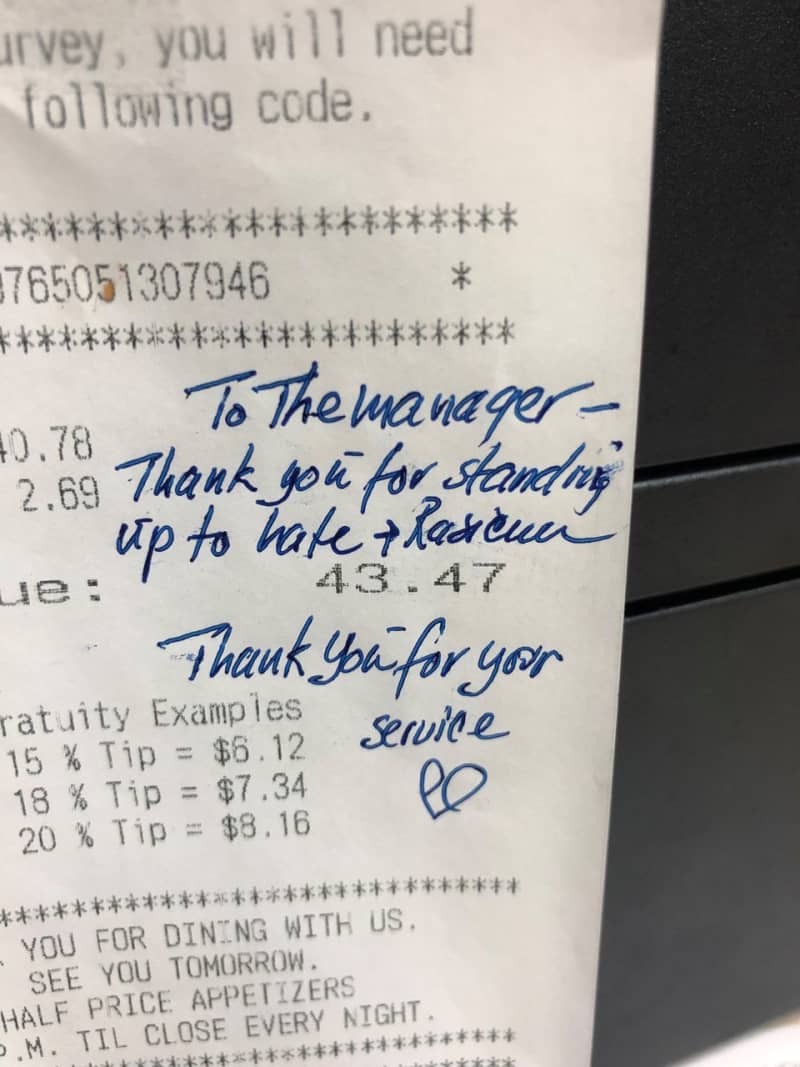 urvey, you will need
following code.
********************************
765051307946 *
********************************
To The manager —
40.78
Thank you for standing
2.69
up to hate + Racism
ue: 43.47
Thank you for your
service
ratuity Examples
15 % Tip = $6.12
18 % Tip = $7.34
20 % Tip = $8.16
********************************
YOU FOR DINING WITH US.
SEE YOU TOMORROW.
HALF PRICE APPETIZERS
P.M. TIL CLOSE EVERY NIGHT.
********************************